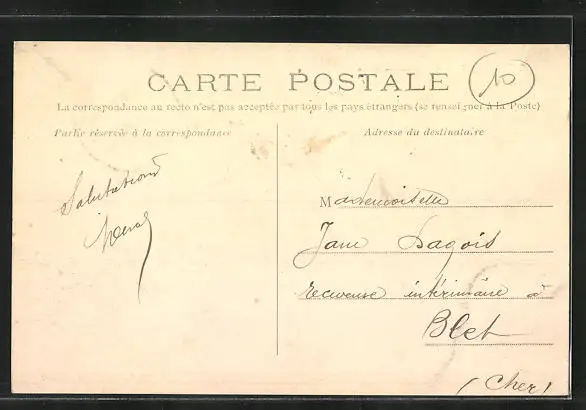 CARTE POSTALE
10
La correspondance au recto n'est pas acceptée par tous les pays étrangers (se renseigner à la Poste)
Partie réservée à la correspondance
Adresse du destinataire
Salutations
Mademoiselle
Jane Dagois
Receveuse intérimaire à
Blet
(Cher)